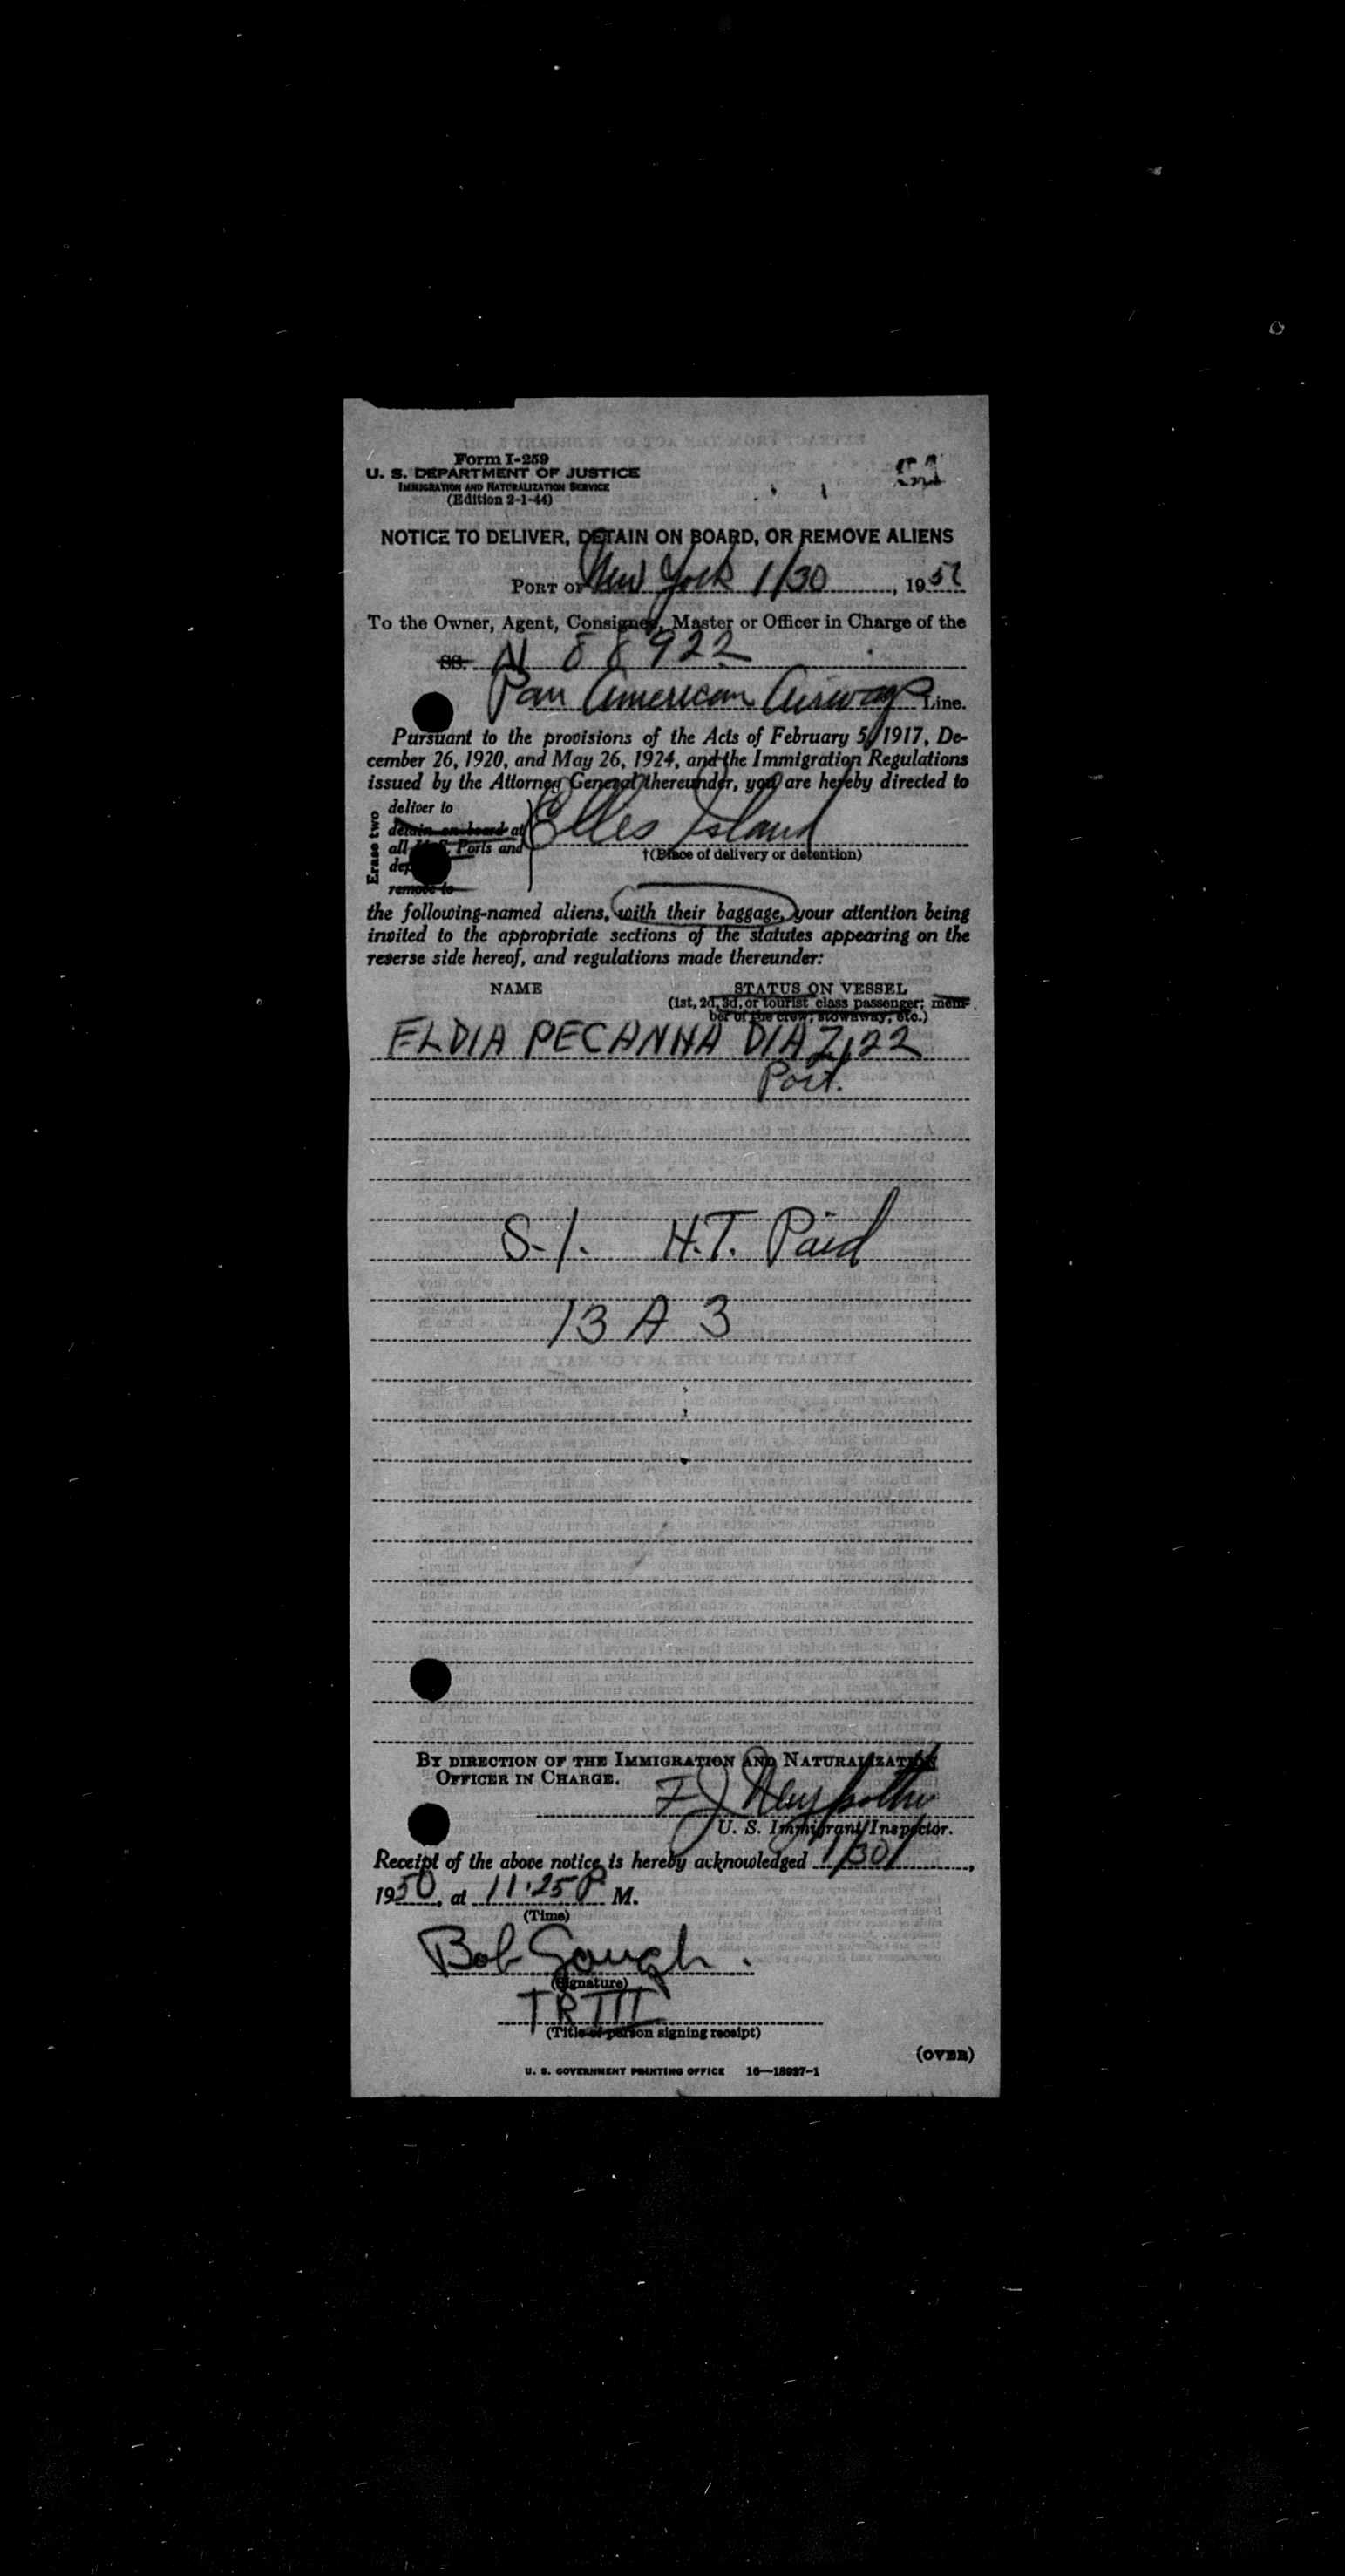 Form I-259
U. S. DEPARTMENT OF JUSTICE
IMMIGRATION AND NATURALIZATION SERVICE
(Edition 2-1-44)
NOTICE TO DELIVER, DETAIN ON BOARD, OR REMOVE ALIENS
PORT OF New York 1/30, 1950
To the Owner, Agent, Consignee, Master or Officer in Charge of the
SS. N 88922
Pan American Airways Line.
Pursuant to the provisions of the Acts of February 5, 1917, De-
cember 26, 1920, and May 26, 1924, and the Immigration Regulations
issued by the Attorney General thereunder, you are hereby directed to
Erase two
deliver to
detain on board at
all U. S. Ports and
remove to
Elles Island
†(Place of delivery or detention)
the following-named aliens, with their baggage, your attention being
invited to the appropriate sections of the statutes appearing on the
reverse side hereof, and regulations made thereunder:
NAME STATUS ON VESSEL
(1st, 2d, 3d, or tourist class passenger; mem-
ber of the crew; stowaway, etc.)
ELDIA PECANHA DIAZ, 22
Port.
S-1. H.T. Paid
13 A 3
BY DIRECTION OF THE IMMIGRATION AND NATURALIZATION
OFFICER IN CHARGE.
F J
U. S. Immigrant Inspector.
Receipt of the above notice is hereby acknowledged 1/30/,
1950, at 11:25 P M.
(Time)
Bob Gough.
(Signature)
TR III
(Title of person signing receipt)
(OVER)
U. S. GOVERNMENT PRINTING OFFICE 16—18937-1